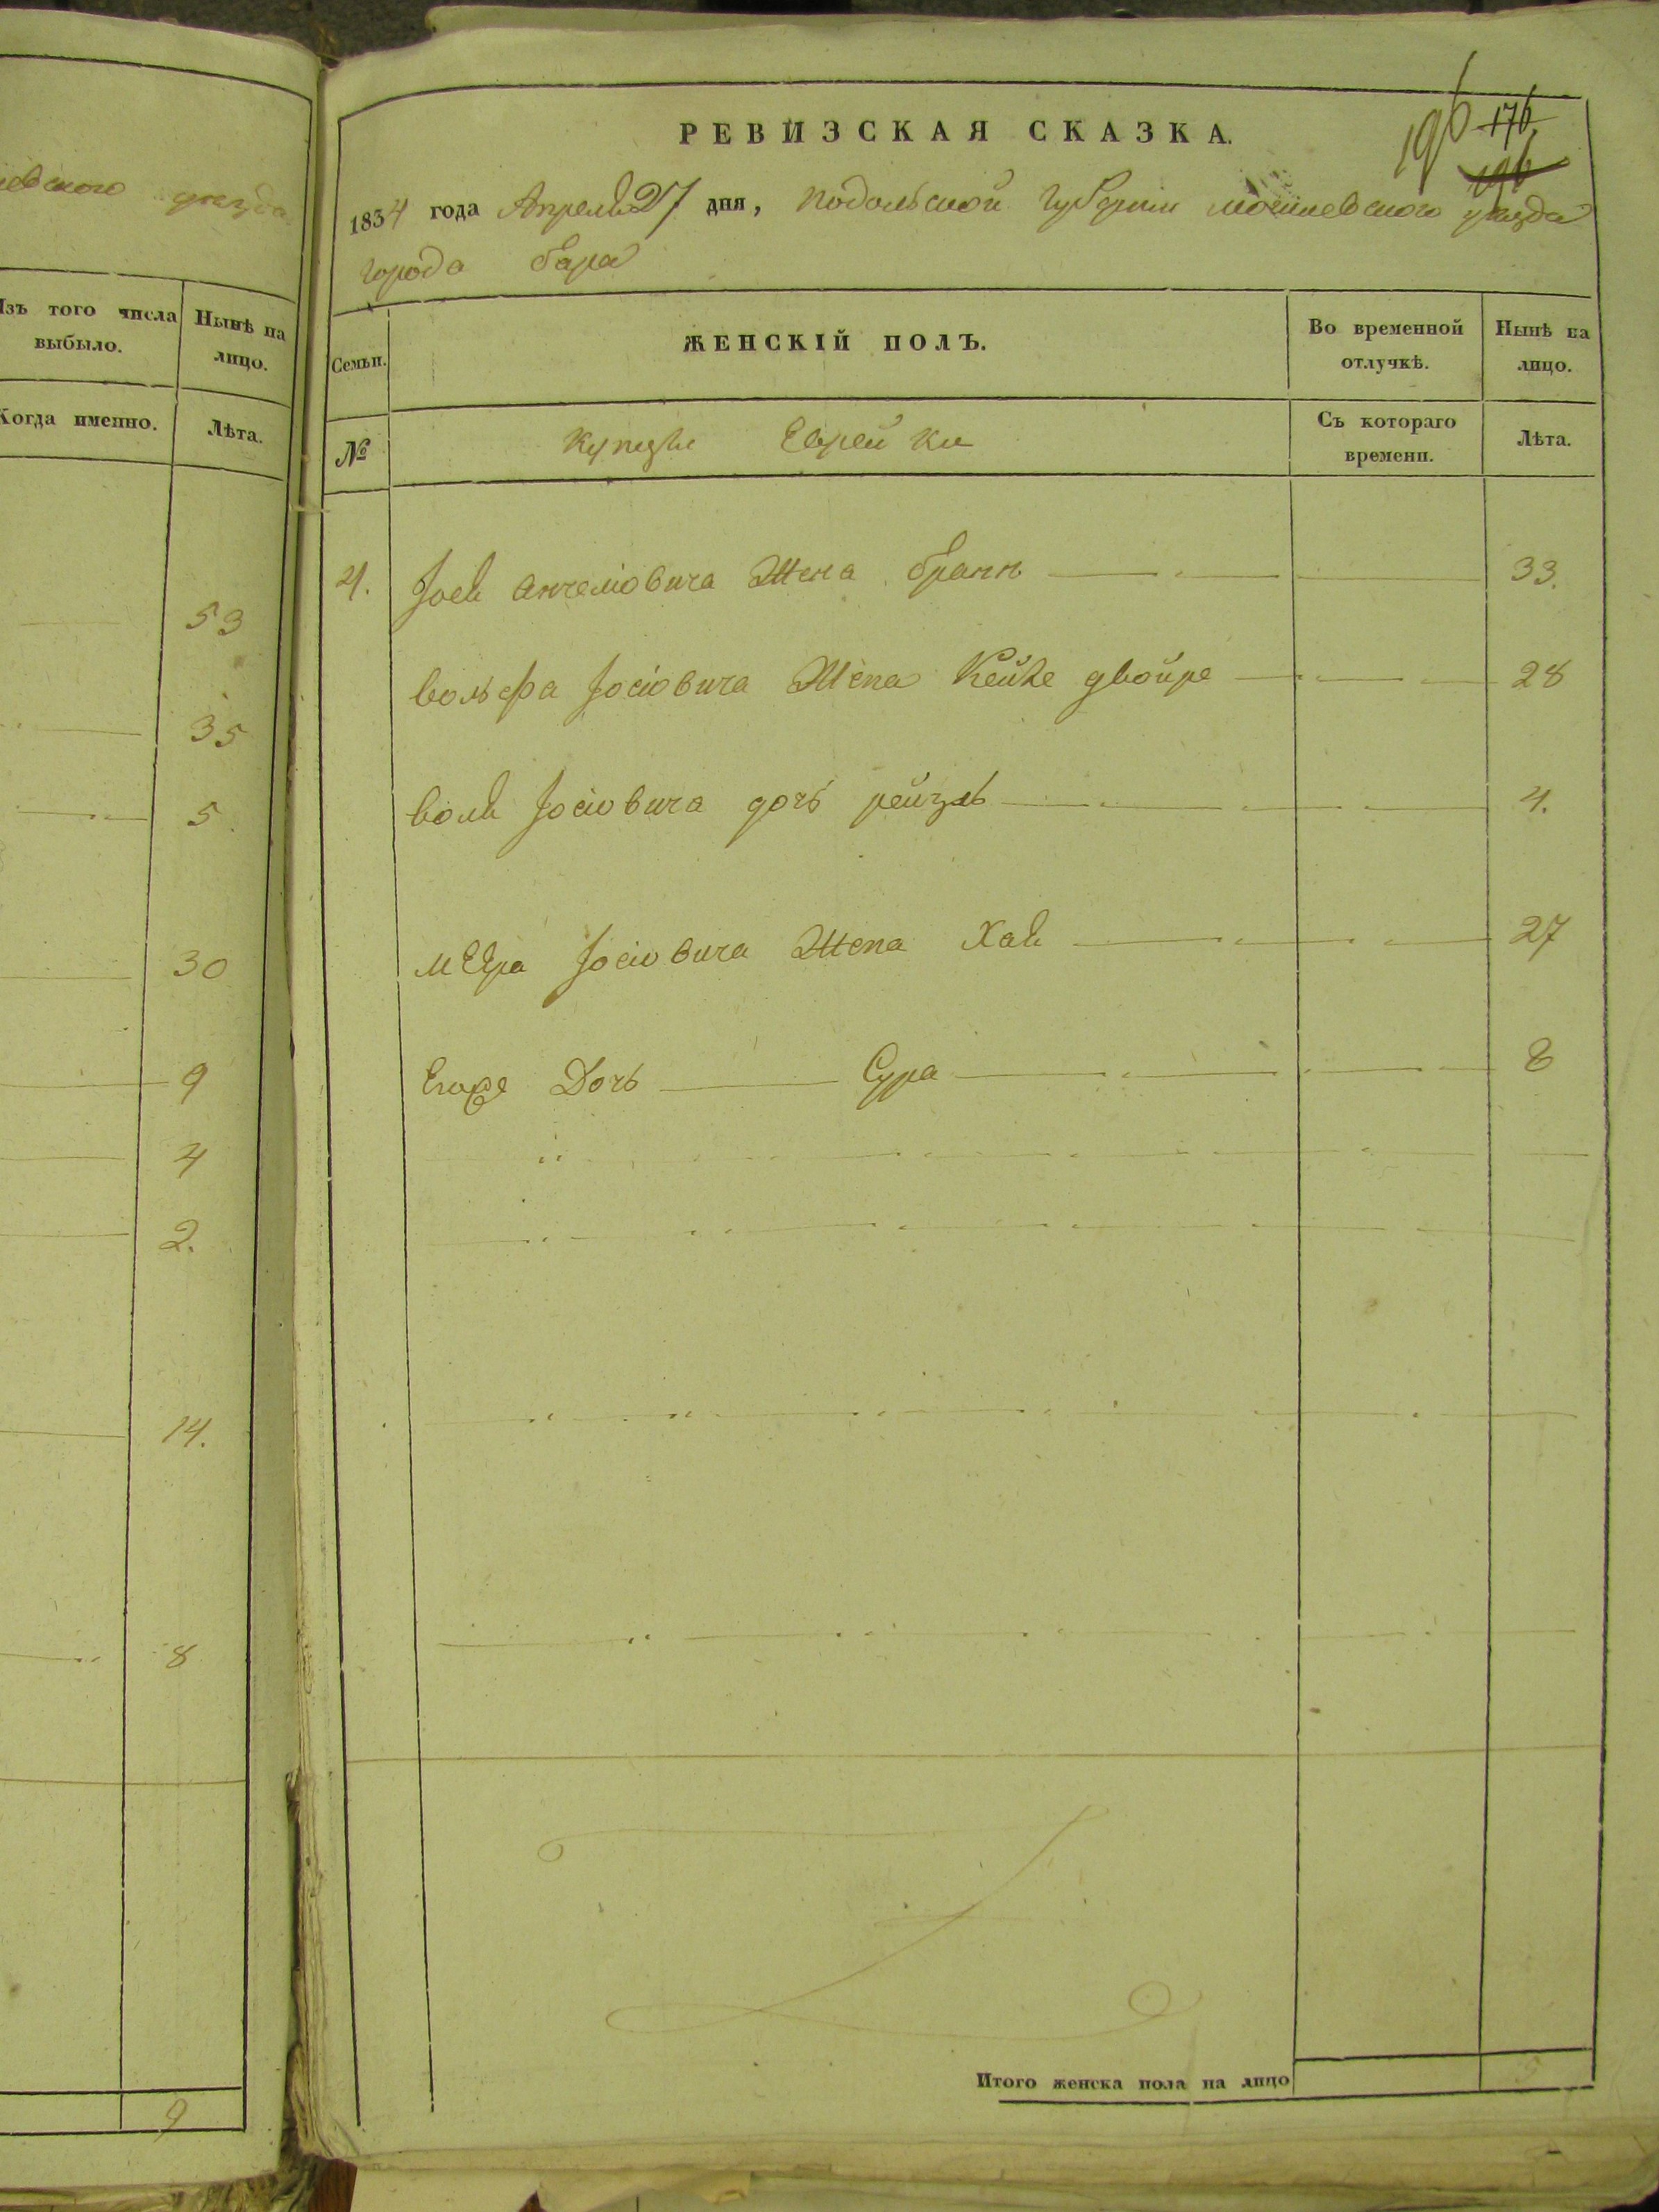 евского уезда
Изъ того числа выбыло.
Нынѣ на лицо.
Когда именно.
Лѣта.
53
35
5
30
9
4
2.
14.
8
9
196 176
196
РЕВИЗСКАЯ СКАЗКА.
1834 года Апреля 27 дня, подольской губернии могилевского уезда
города бара
Семьи.
ЖЕНСКІЙ ПОЛЪ.
Во временной отлучкѣ.
Нынѣ на лицо.
№
купцы Еврейки
Съ котораго времени.
Лѣта.
4. Іося Анчеліовича Жена 33.
вольфа Іосіовича Жена Кейле двойре 28
воли Іосіовича дочь рейзль 4.
меера Іосіовича Жена Хая 27
Егоже Дочь Сура 8
Итого женска пола на лицо 5